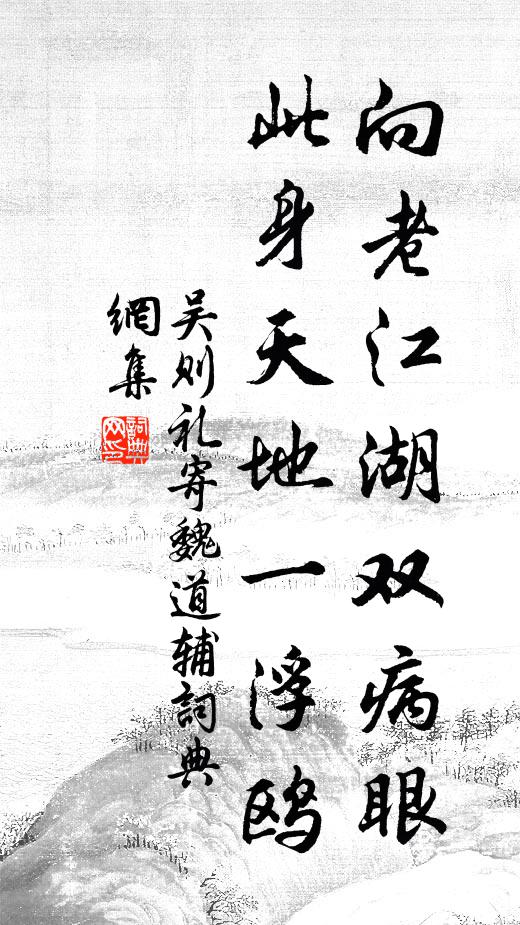 向老江湖双病眼
此身天地一浮鸥
吴则礼寄魏道辅詞典
網集
詞典网印